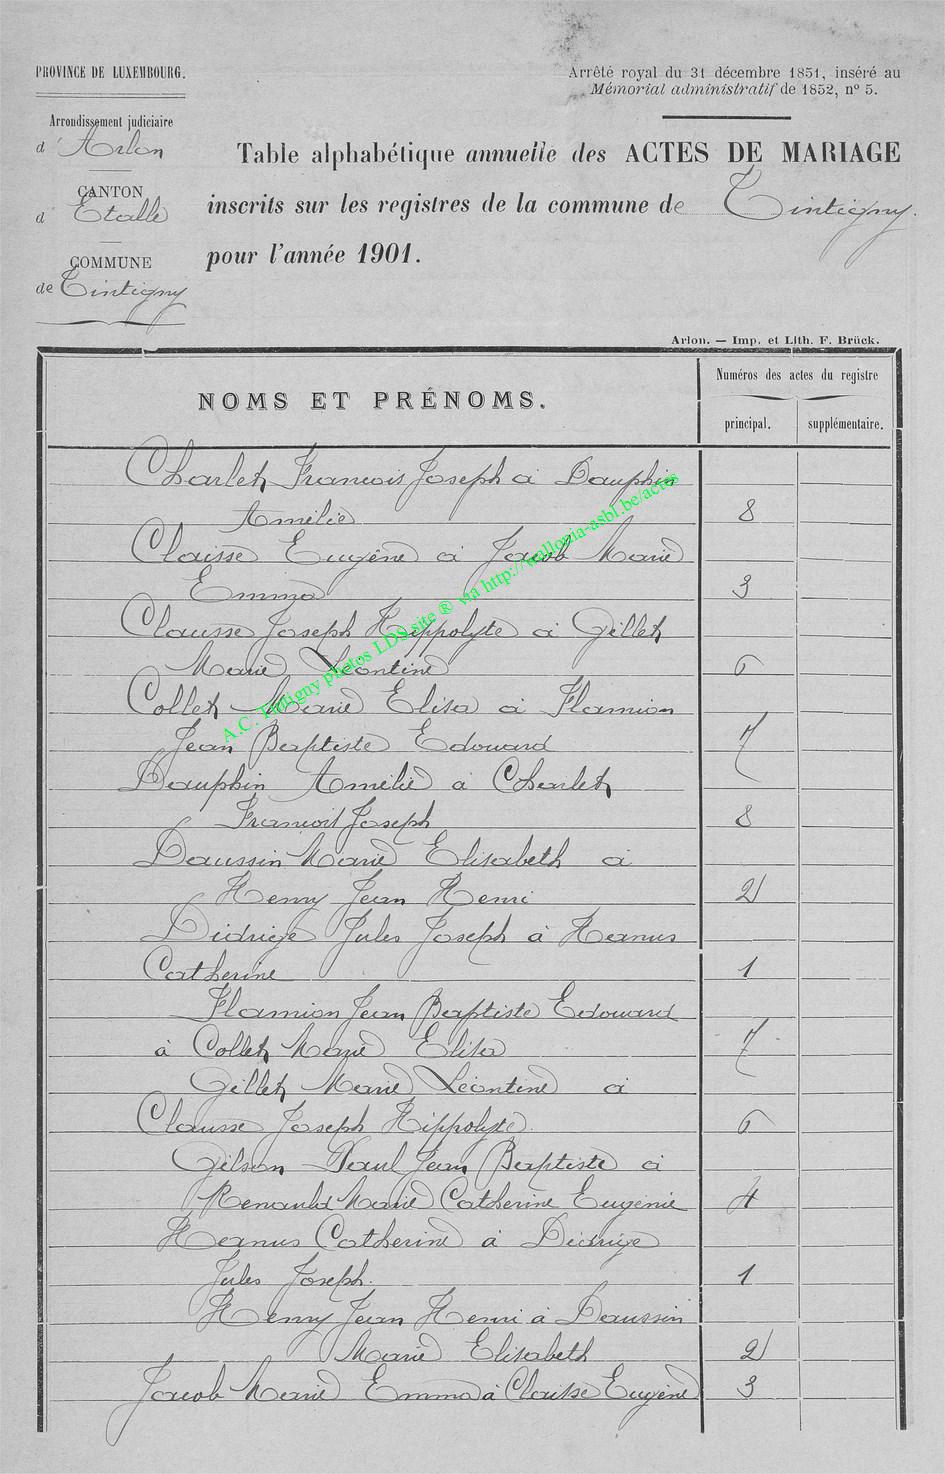 PROVINCE DE LUXEMBOURG.
Arrondissement judiciaire
d'Arlon
CANTON
d'Etalle
COMMUNE
de Tintigny
Arrêté royal du 31 décembre 1851, inséré au
Mémorial administratif de 1852, n° 5.
Table alphabétique annuelle des ACTES DE MARIAGE
inscrits sur les registres de la commune de Tintigny.
pour l'année 1901.
Arlon. — Imp. et Lith. F. Brück.
NOMS ET PRÉNOMS.
Numéros des actes du registre
principal.
supplémentaire.
Charlet François Joseph à Dauphin
Amélie 8
Claisse Eugène à Jacob Marie
Emma 3
Clausse Joseph Hippolyte à Gillet
Marie Léontine 6
Collet Marie Elisa à Flamion
Jean Baptiste Edouard 7
Dauphin Amélie à Charlet
François Joseph 8
Daussin Marie Elisabeth à
Henry Jean Henri 2
Didrige Jules Joseph à Hanus
Catherine 1
Flamion Jean Baptiste Edouard
à Collet Marie Elisa 7
Gillet Marie Léontine à
Clausse Joseph Hippolyte. 6
Gilson Paul Jean Baptiste à
Renauld Marie Catherine Eugénie 4
Hanus Catherine à Didrige
Jules Joseph. 1
Henry Jean Henri à Daussin
Marie Elisabeth 2
Jacob Marie Emma à Claisse Eugène 3
A.C. Tintigny photos LDS site ® via http://wallonia-asbl.be/actes